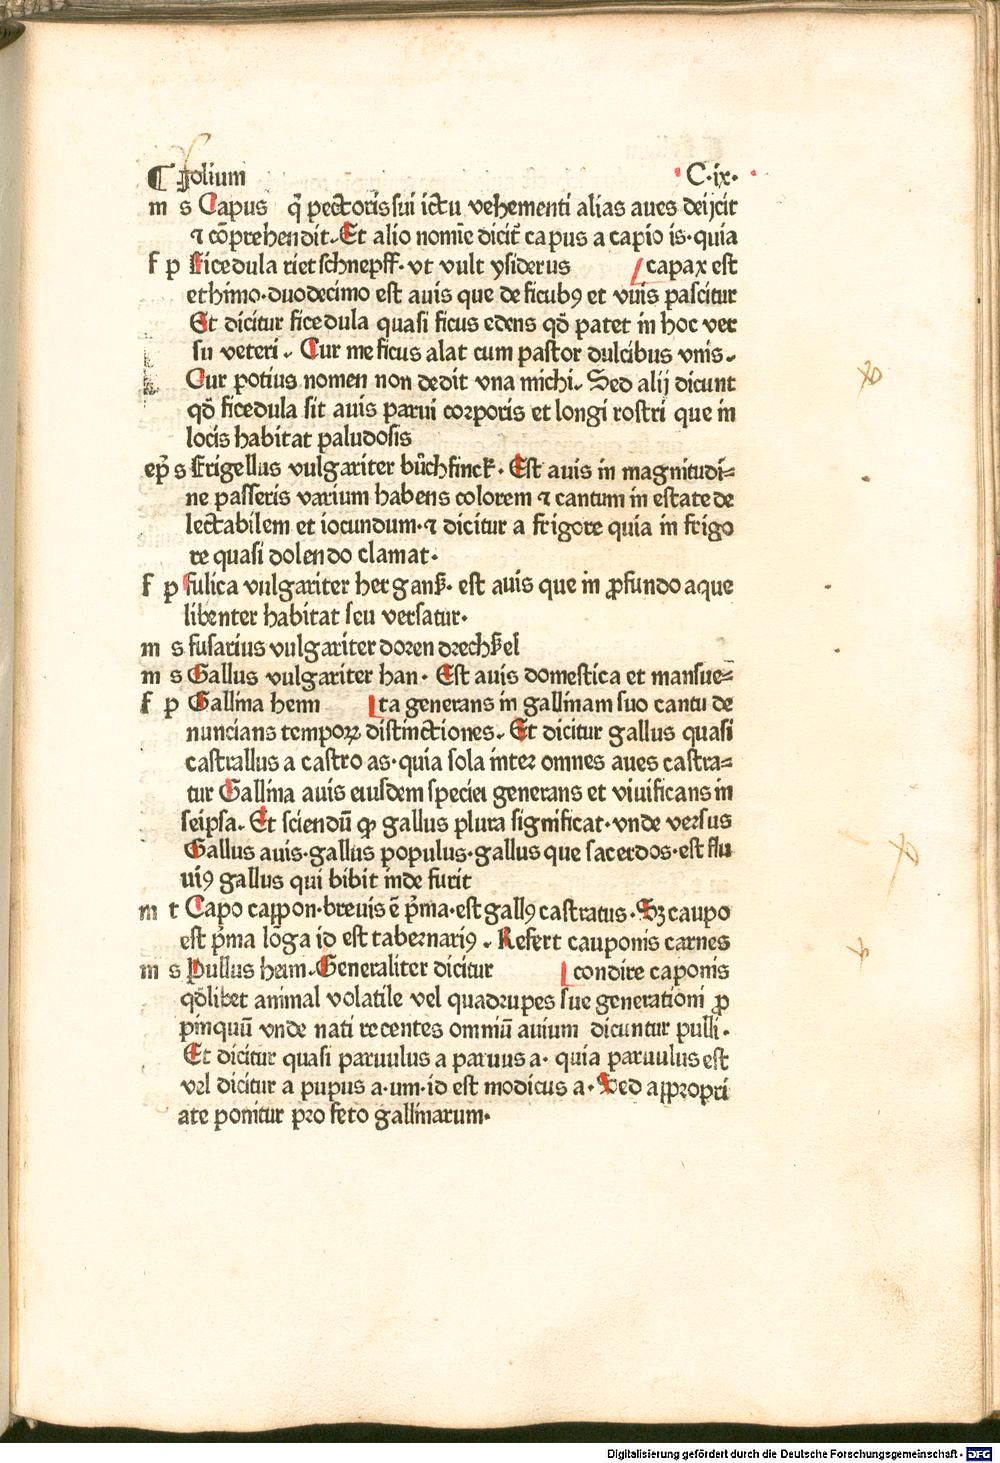 ¶ Folium C·ix·
m s Capus q̄ pectoris sui ictu vehementi alias aues deijcit
⁊ cōprehendit. Et alio nomīe dicit᷑ capus a capio is·quia
f p Ficedula rietschnepff· vt vult ysiderus capax est
ethimo·duodecimo est auis que de ficubꝰ et vuis pascitur
Et dicitur ficedula quasi ficus edens qd̄ patet in hoc ver
su veteri. Cur me ficus alat cum pastor dulcibus vuis.
Cur potius nomen non dedit vua michi. Sed alij dicunt
qd̄ ficedula sit auis parui corporis et longi rostri que in
locis habitat paludosis
ep̄ s Frigellus vulgariter bůchfinck. Est auis in magnitudi=
ne passeris varium habens colorem ⁊ cantum in estate de
lectabilem et iocundum·⁊ dicitur a frigore quia in frigo
re quasi dolendo clamat·
f p fulica vulgariter hergansz· est auis que in ꝓfundo aque
libenter habitat seu versatur·
m s fusarius vulgariter doren drechszel
m s Gallus vulgariter han· Est auis domestica et mansue=
f p Gallina henn ta generans in gallinam suo cantu de
nuncians temporꝝ distinctiones. Et dicitur gallus quasi
castrallus a castro as·quia sola inter omnes aues castra=
tur Gallina auis eiusdem speciei generans et viuificans in
seipsa. Et sciendū ꝙ gallus plura significat·vnde versus
Gallus auis·gallus populus·gallus que sacerdos·est flu
uiꝰ gallus qui bibit inde furit
m t Capo cappon·breuis ē p̄ma·est gallꝰ castratus· Sꝫ caupo
est p̄ma lōga id est tabernariꝰ. Refert cauponis carnes
m s Pullus heim. Generaliter dicitur condire caponis
qd̄libet animal volatile vel quadrupes sue generationi ꝓ
pinquū vnde nati recentes omniū auium dicuntur pulli·
Et dicitur quasi paruulus a paruus a· quia paruulus est
vel dicitur a pupus a·um·id est modicus a· Sed appropri
ate ponitur pro feto gallinarum·
Digitalisierung gefördert durch die Deutsche Forschungsgemeinschaft - DFG